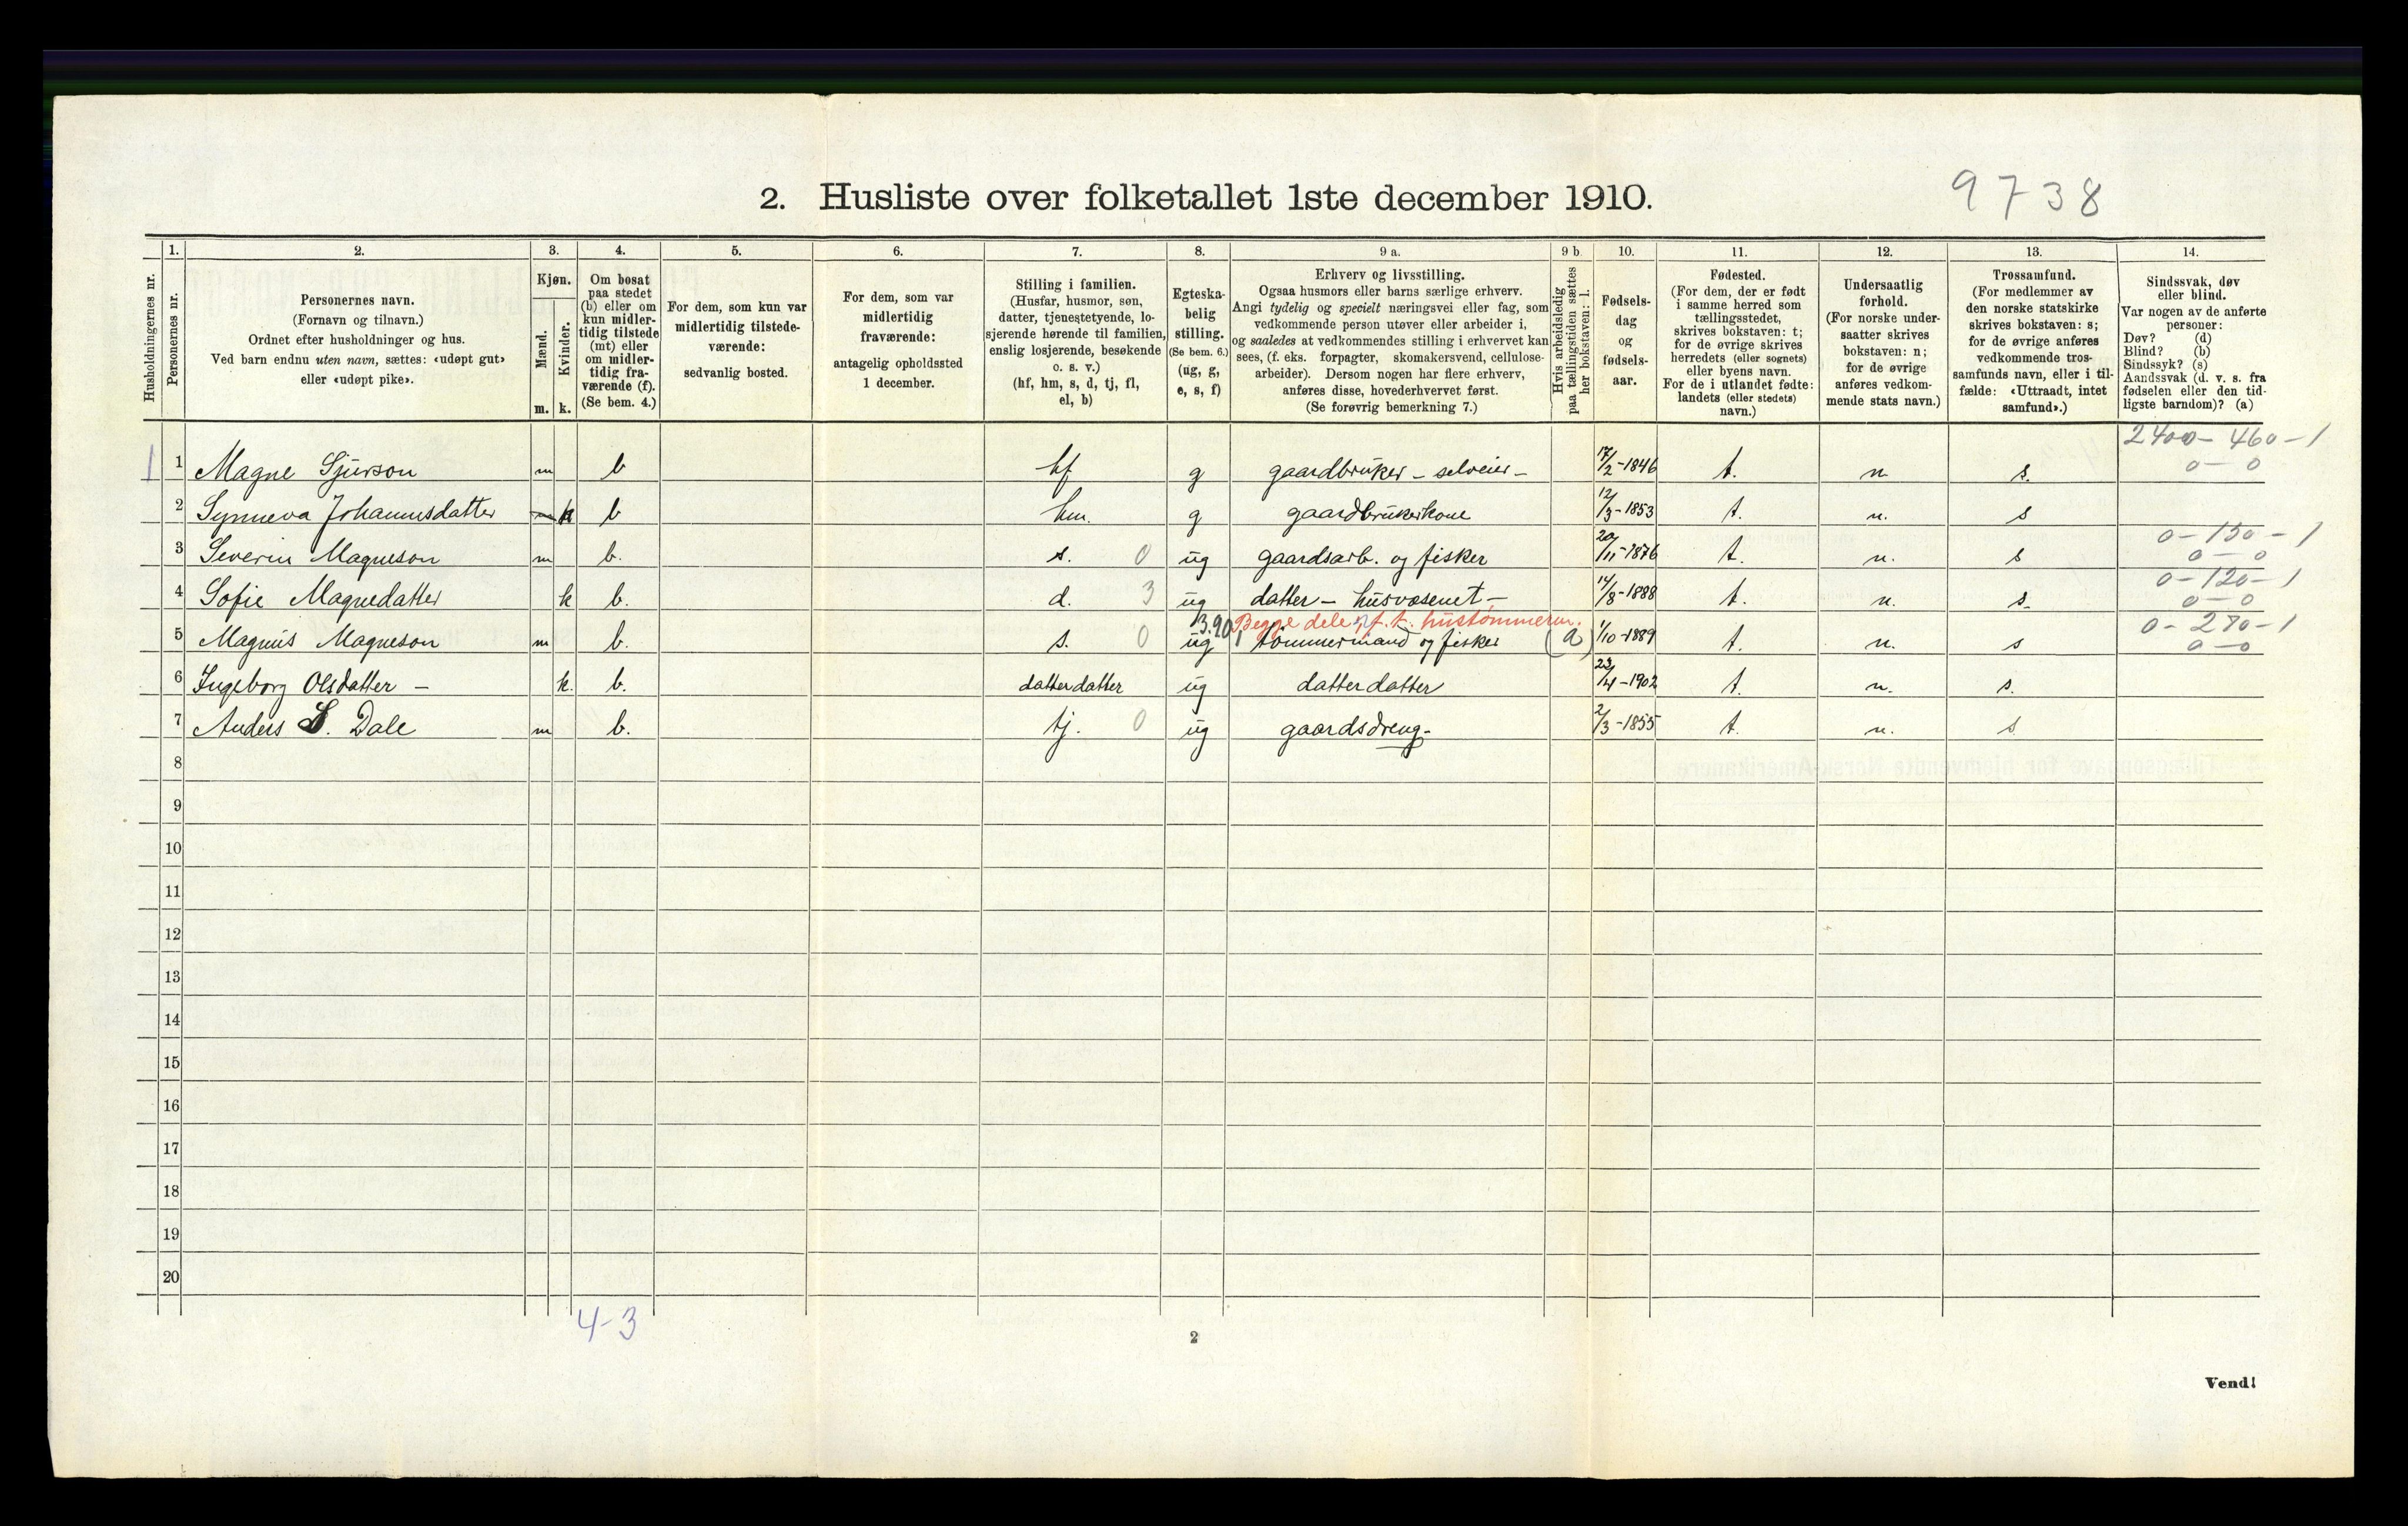 9738
2. Husliste over folketallet 1ste december 1910.
Husholdningernes nr.
1.
Personernes nr.
2.
Personernes navn.
(Fornavn og tilnavn.)
Ordnet efter husholdninger og hus.
Ved barn endnu uten navn, sættes: «udøpt gut»
eller «udøpt pike».
3.
Kjøn.
Mænd.
Kvinder.
m. k.
4.
Om bosat
paa stedet
(b) eller om
kun midler-
tidig tilstede
(mt) eller
om midler-
tidig fra-
værende (f).
(Se bem. 4.)
5.
For dem, som kun var
midlertidig tilstede-
værende:
sedvanlig bosted.
6.
For dem, som var
midlertidig
fraværende:
antagelig opholdssted
1 december.
7.
Stilling i familien.
(Husfar, husmor, søn,
datter, tjenestetyende, lo-
sjerende hørende til familien,
enslig losjerende, besøkende
o. s. v.)
(hf, hm, s, d, tj, fl,
el, b)
8.
Egteska-
belig
stilling.
(Se bem. 6.)
(ug, g,
e, s, f)
9 a.
Erhverv og livsstilling.
Ogsaa husmors eller barns særlige erhverv.
Angi tydelig og specielt næringsvei eller fag, som
vedkommende person utøver eller arbeider i,
og saaledes at vedkommendes stilling i erhvervet kan
sees, (f. eks. forpagter, skomakersvend, cellulose-
arbeider). Dersom nogen har flere erhverv,
anføres disse, hovederhvervet først.
(Se forøvrig bemerkning 7.)
9 b.
Hvis arbeidsledig
paa tællingstiden sættes
her bokstaven: l.
10.
Fødsels-
dag
og
fødsels-
aar.
11.
Fødested.
(For dem, der er født
i samme herred som
tællingsstedet,
skrives bokstaven: t;
for de øvrige skrives
herredets (eller sognets)
eller byens navn.
For de i utlandet fødte:
landets (eller stedets)
navn.)
12.
Undersaatlig
forhold.
(For norske under-
saatter skrives
bokstaven: n;
for de øvrige
anføres vedkom-
mende stats navn.)
13.
Trossamfund.
(For medlemmer av
den norske statskirke
skrives bokstaven: s;
for de øvrige anføres
vedkommende tros-
samfunds navn, eller i til-
fælde: «Uttraadt, intet
samfund».)
14.
Sindssvak, døv
eller blind.
Var nogen av de anførte
personer:
Døv? (d)
Blind? (b)
Sindssyk? (s)
Aandssvak (d. v. s. fra
fødselen eller den tid-
ligste barndom)? (a)
2400 - 460 - 1
1 1 Magne Sjurson m b hf g gaardbruker - selveier - 17/2-1846 t. n. s. 0 - 0
2 Synneva Johannesdatter m k b hm. g gaardbrukerkone 12/3-1853 t. n. s
0 - 150 - 1
3 Severin Magneson m b. s. 0 ug gaardsarb. og fisker 20/11-1876 t. n. s 0 - 0
0 - 120 - 1
4 Sofie Magnedatter k b. d. 3 ug datter - husvæsenet - 14/8-1888 t. n. s. 0 - 0
3.90 Begge dele, f. t. hustømmerm. 0 - 270 - 1
5 Magnus Magneson m b. s. 0 ug tømmermand og fisker (a) 1/10-1889 t. n. s 0 - 0
6 Ingeborg Olsdatter - k. b. datterdatter ug datterdatter 23/4-1902 t. n. s.
7 Anders S. Dale m b. tj. 0 ug gaardsdreng - 2/3-1855 t. n. s
8
9
10
11
12
13
14
15
16
17
18
19
20
4-3
2
Vend!